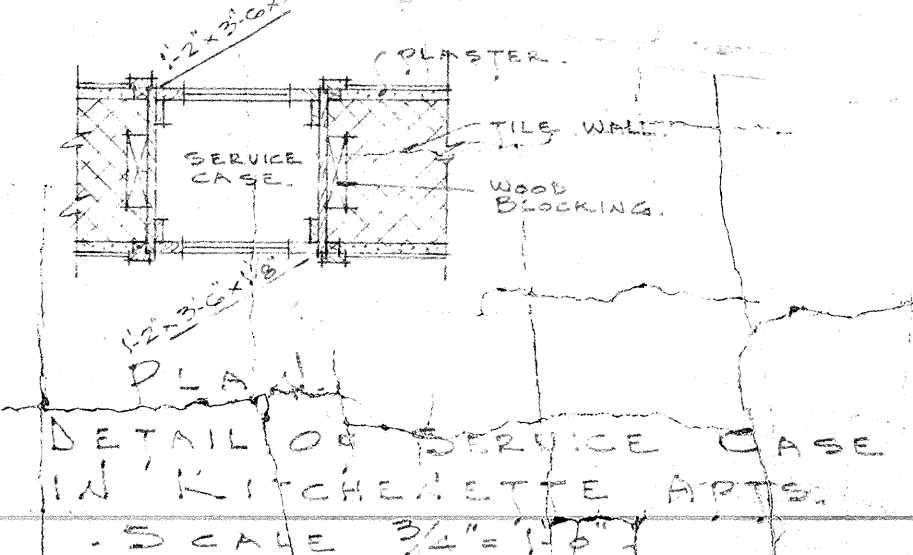 1'-2" x 3'-6" x
PLASTER.
TILE WALL.
SERVICE
CASE.
WOOD
BLOCKING.
1'-2" x 3'-6" x 1 1/8"
PLAN
DETAIL OF SERVICE CASE
IN KITCHENETTE APTS.
SCALE 3/4" = 1'-0"